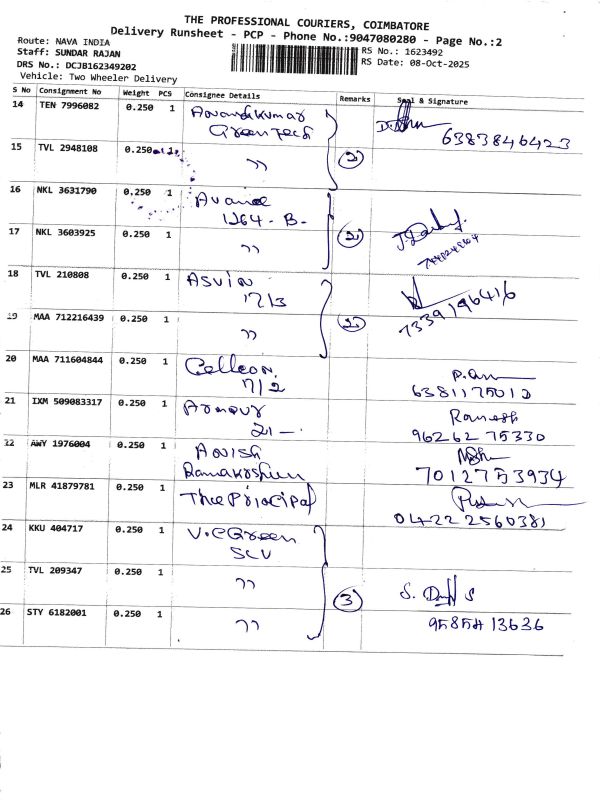 THE PROFESSIONAL COURIERS, COIMBATORE
Delivery Runsheet - PCP - Phone No.:9047080280 - Page No.:2
Route: NAVA INDIA
Staff: SUNDAR RAJAN
RS No.: 1623492
DRS No.: DCJB162349202
RS Date: 08-Oct-2025
Vehicle: Two Wheeler Delivery
S No Consignment No Weight PCS Consignee Details Remarks Seal & Signature
14 TEN 7996082 0.250 1 Anandkumar
Green Tech
6383846423
15 TVL 2948108 0.250 1 " 2
16 NKL 3631790 0.250 1
1264 - B-
17 NKL 3603925 0.250 1 " 2
18 TVL 210808 0.250 1 ASVIN
17/3
7339196416
19 MAA 712216439 0.250 1 " 2
20 MAA 711604844 0.250 1
7/2
6381175012
21 IXM 509083317 0.250 1 Armour Ramesh
21 -
96262 75330
22 AWY 1976004 0.250 1 Anish
7012753934
23 MLR 41879781 0.250 1 The Principal
04222560381
24 KKU 404717 0.250 1 V.C Green
SCV
25 TVL 209347 0.250 1 " 3
26 STY 6182001 0.250 1 "
95854 13636